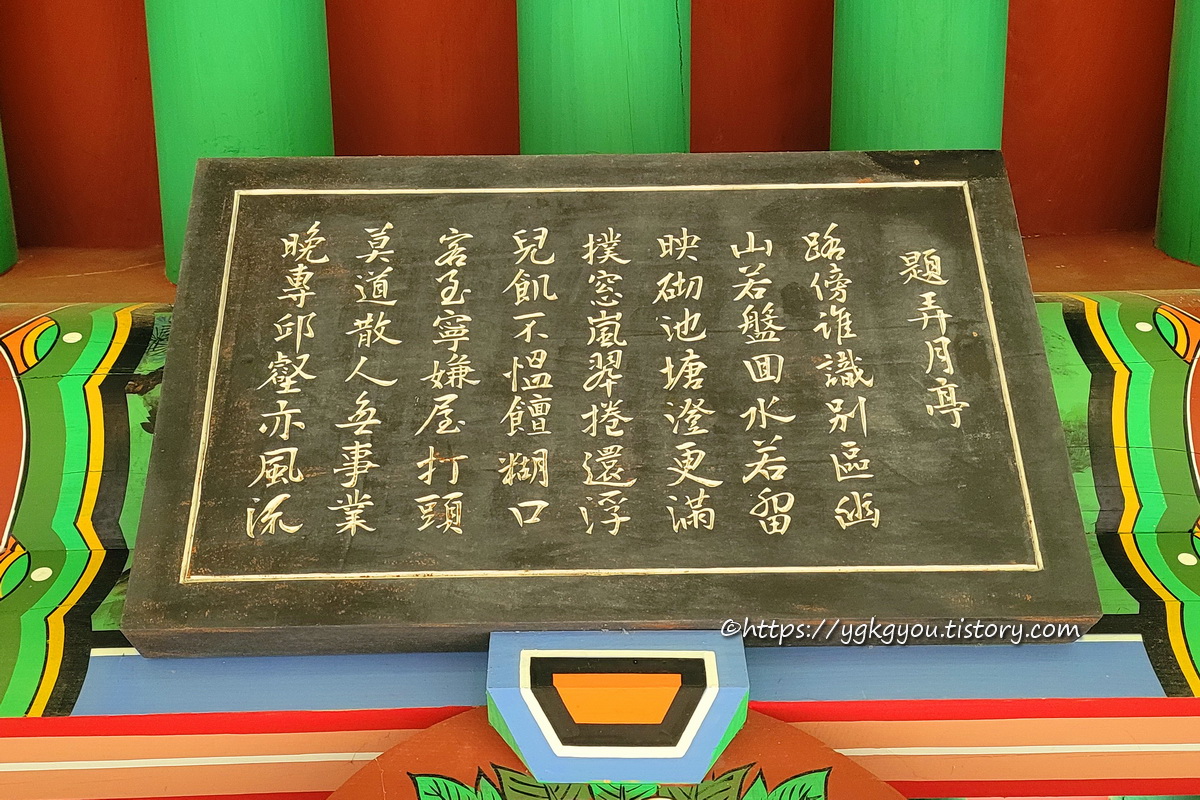 題弄月亭
路傍誰識別區幽
山若盤回水若留
映砌池塘澄更滿
撲窓嵐翠捲還浮
兒飢不慍饘糊口
客至寧嫌屋打頭
莫道散人無事業
晩專邱壑亦風流
©https://ygkgyou.tistory.com